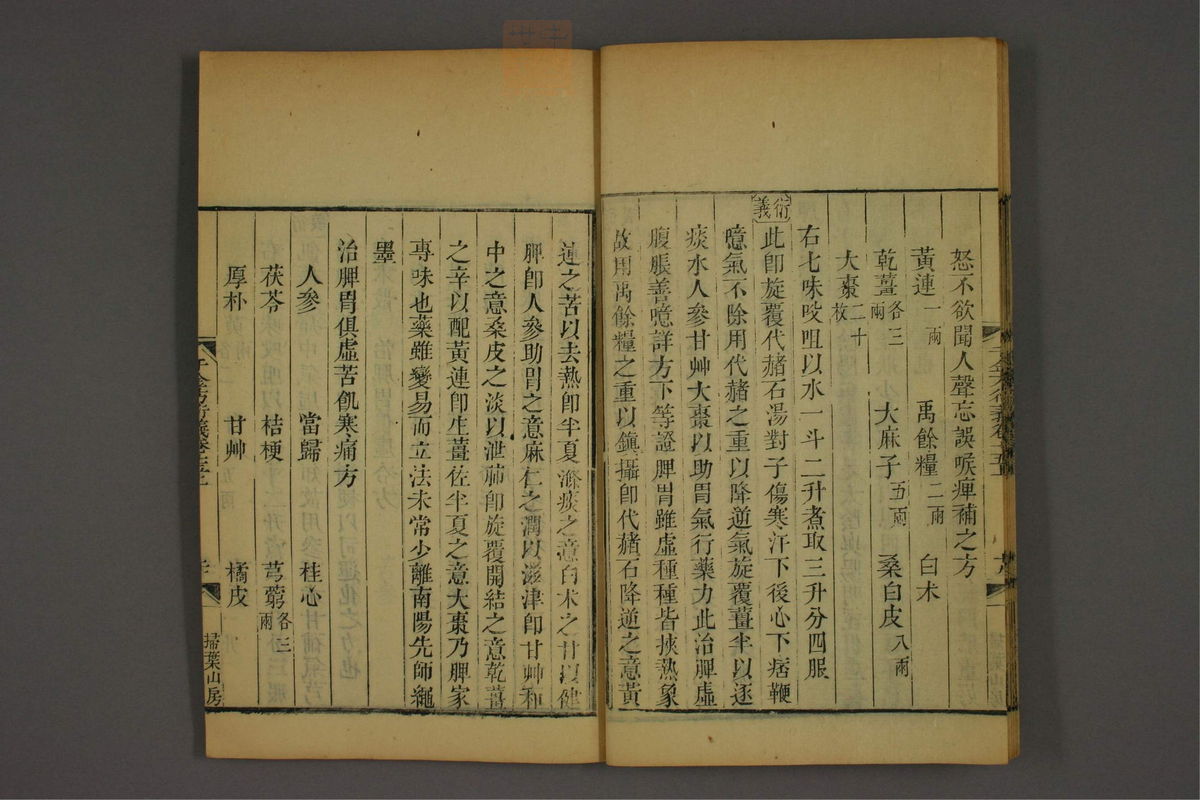 怒不欲聞人聲忘誤喉痺補之方
黃連一兩 禹餘糧二兩 白朮
乾薑各三兩 大麻子五兩 桑白皮八兩
大棗二十枚
右七味㕮咀以水一斗二升煮取三升分四服
衍義 此卽旋覆代赭石湯對子傷寒汗下後心下痞鞕
噫氣不除用代赭之重以降逆氣旋覆薑半以逐
痰水人參甘艸大棗以助胃氣行藥力此治脾虛
腹脹善噫詳方下等證脾胃雖虛種種皆挾熱象
故用禹餘糧之重以鎭攝卽代赭石降逆之意黃
連之苦以去熱卽半夏滌痰之意白朮之甘以健
脾卽人參助胃之意麻仁之潤以滋津卽甘艸和
中之意桑皮之淡以泄肺卽旋覆開結之意乾薑
之辛以配黃連卽生薑佐半夏之意大棗乃脾家
專味也藥雖變易而立法未常少離南陽先師繩
墨
治脾胃俱虛苦飢寒痛方
人參 當歸 桂心
茯苓 桔梗 芎藭各三兩
厚朴 甘艸 橘皮
掃葉山房